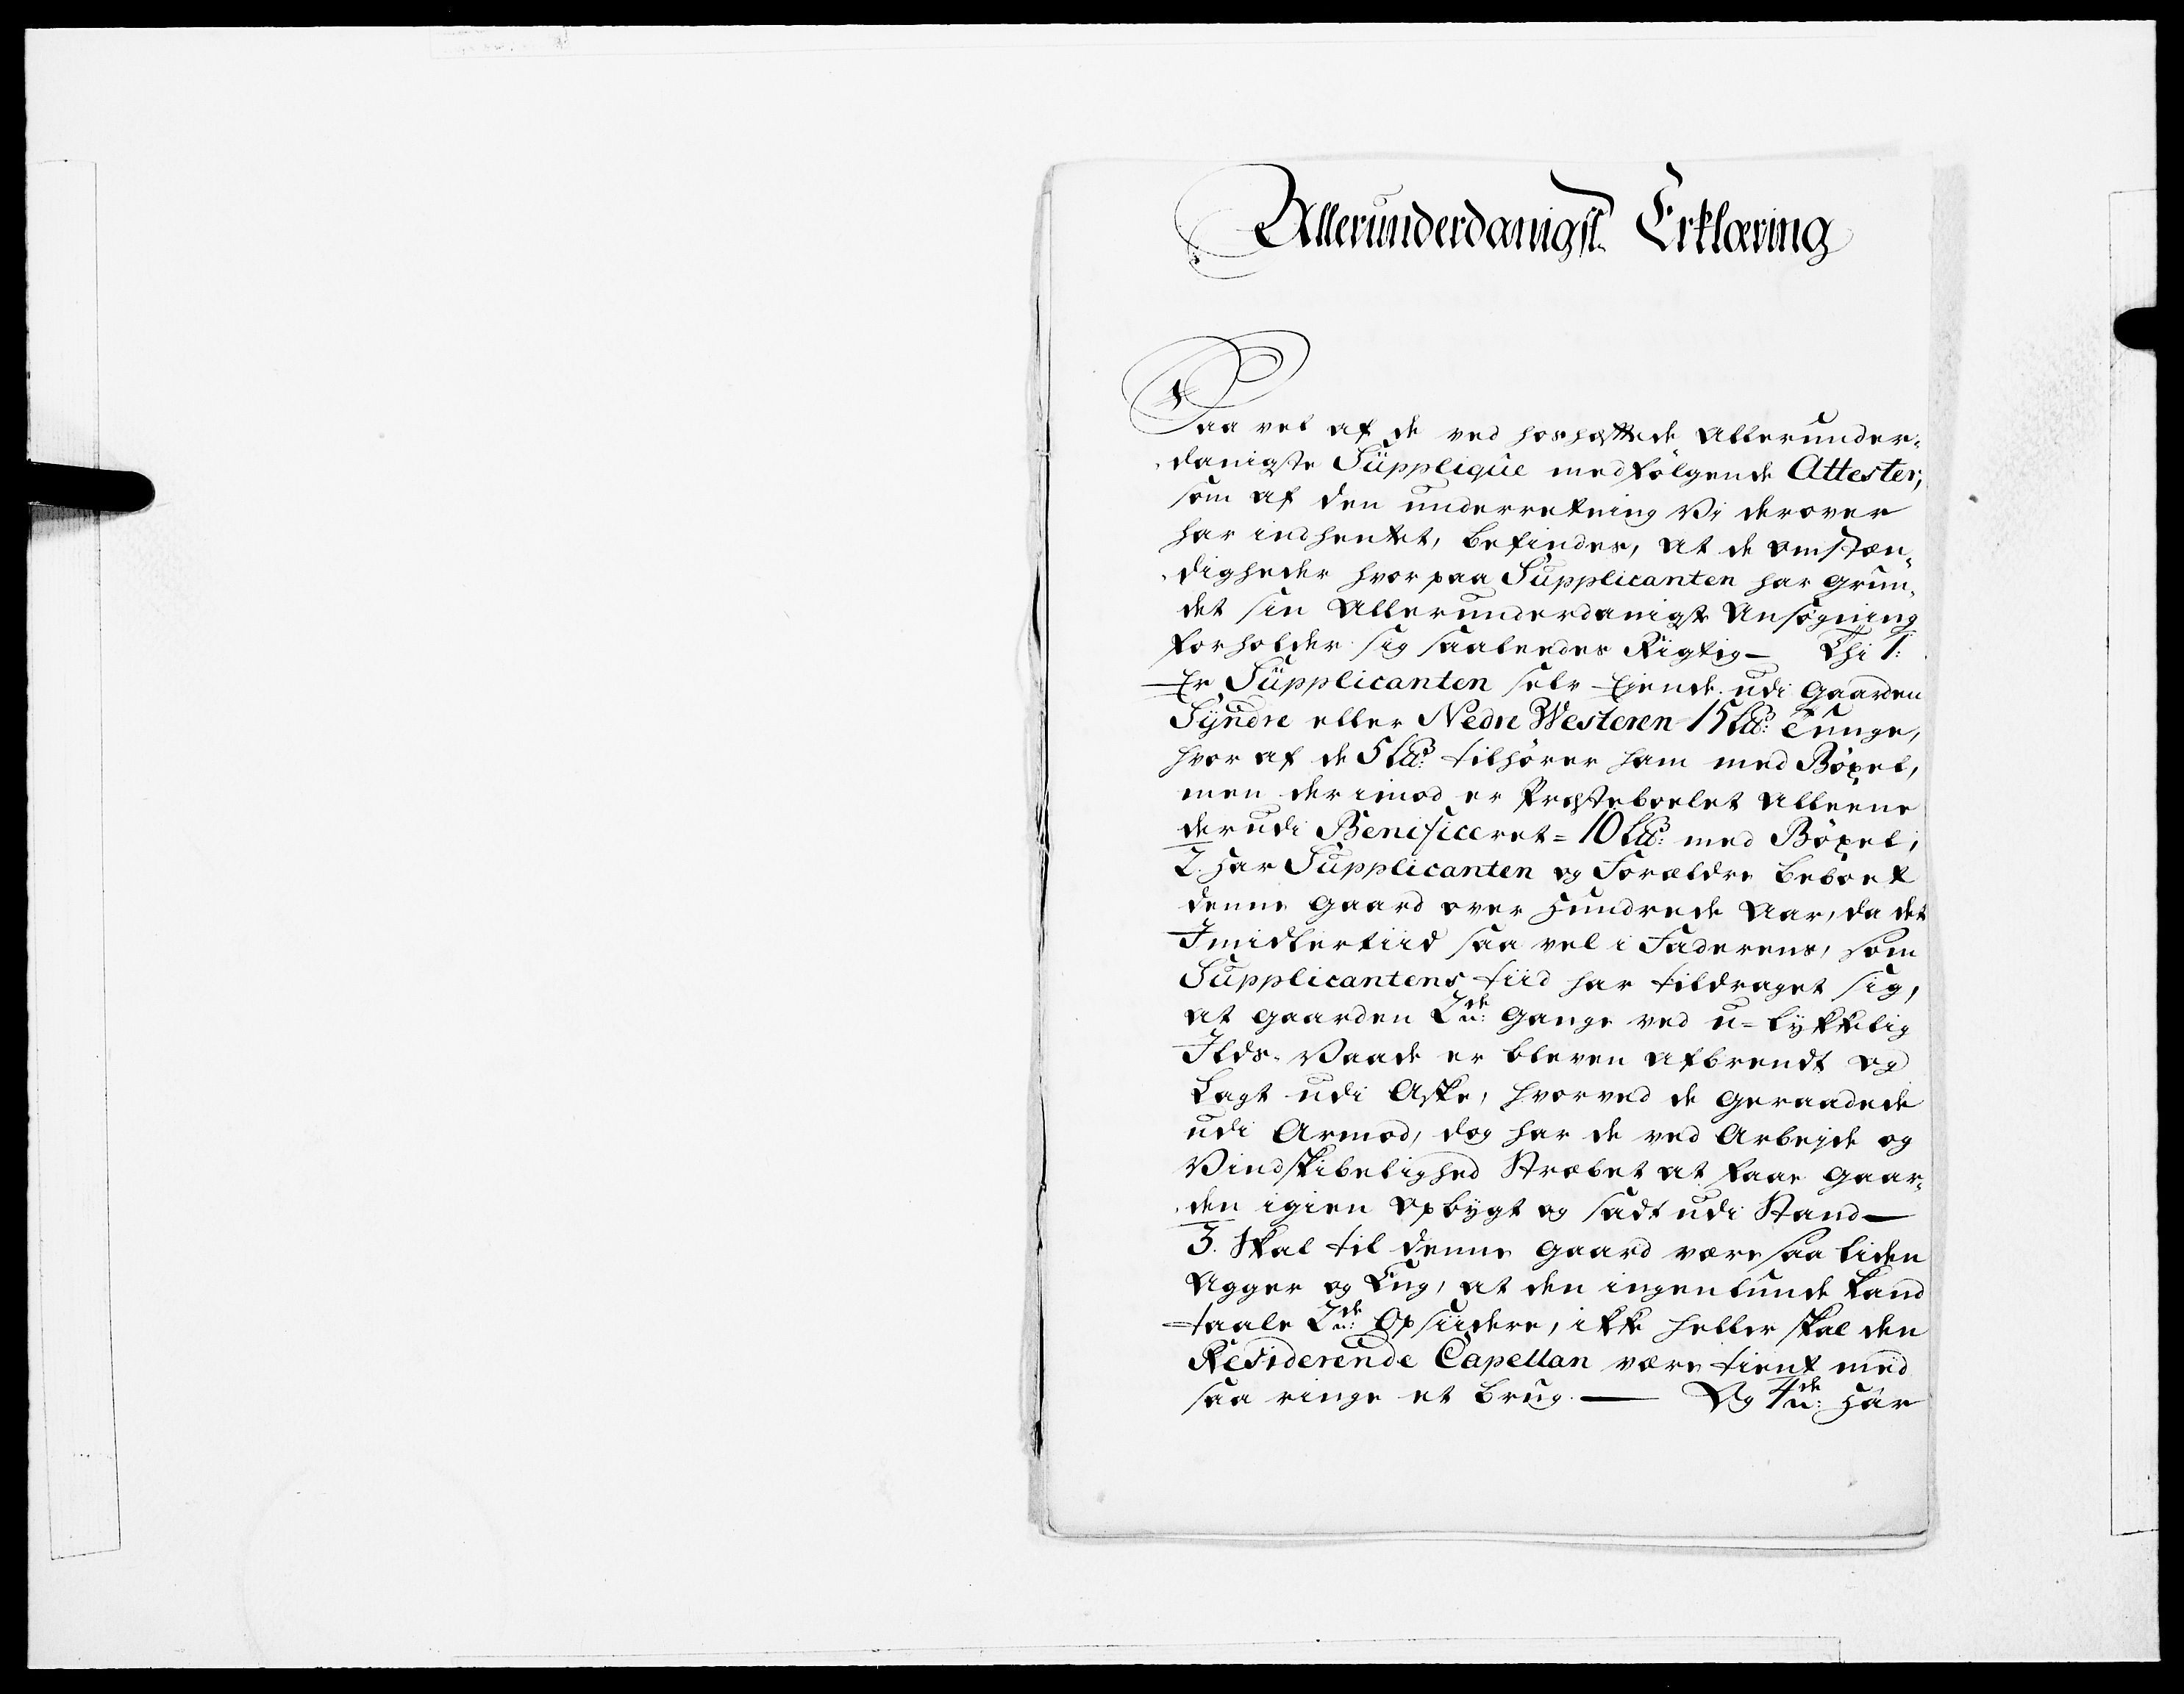 Allerunderdanigst Erklæring
Saa vel af de ved hoshæftede Allerunder-
danigste Supplique medfölgende Attester,
som af den underretning Vi derover
har indhentet, befindes, at de omstæn-
digheder hvorpaa Supplicanten har grun-
det sin Allerunderdanigste Ansøgning
forholder sig saaledes Rigtig – Thi 1:
Er Supplicanten selv Ejende udi gaarden
Syndre eller Nedre Westeren 15 Tunge,
hvor af de 5 tilhörer ham med Böxel,
men derimod er Præsteboelet Alleene
derudi Benificeret = 10 med Böxel;
2. Har Supplicanten og Forældre beboet
denne gaard over Hundrede Aar, da det
Imidlertiid saa vel i Faderens, som
Supplicantens tiid har tildraget sig,
at gaarden 2de Gange ved u=lykkelig
Ilds-Vaade er bleven afbrendt og
Lagt udi Aske, hvorved de geraadede
udi Armod, dog har de ved Arbejde og
Vindskibelighed stræbet at faae gaar-
den igien opbygt og sadt udi Stand –
3. Skal til denne gaard være saa liden
Agger og Eng, at den ingenlunde kand
taale 2de Opsiidere, ikke heller skal den
Residerende Capellan være tient med
saa ringe et brug. – Og 4de har